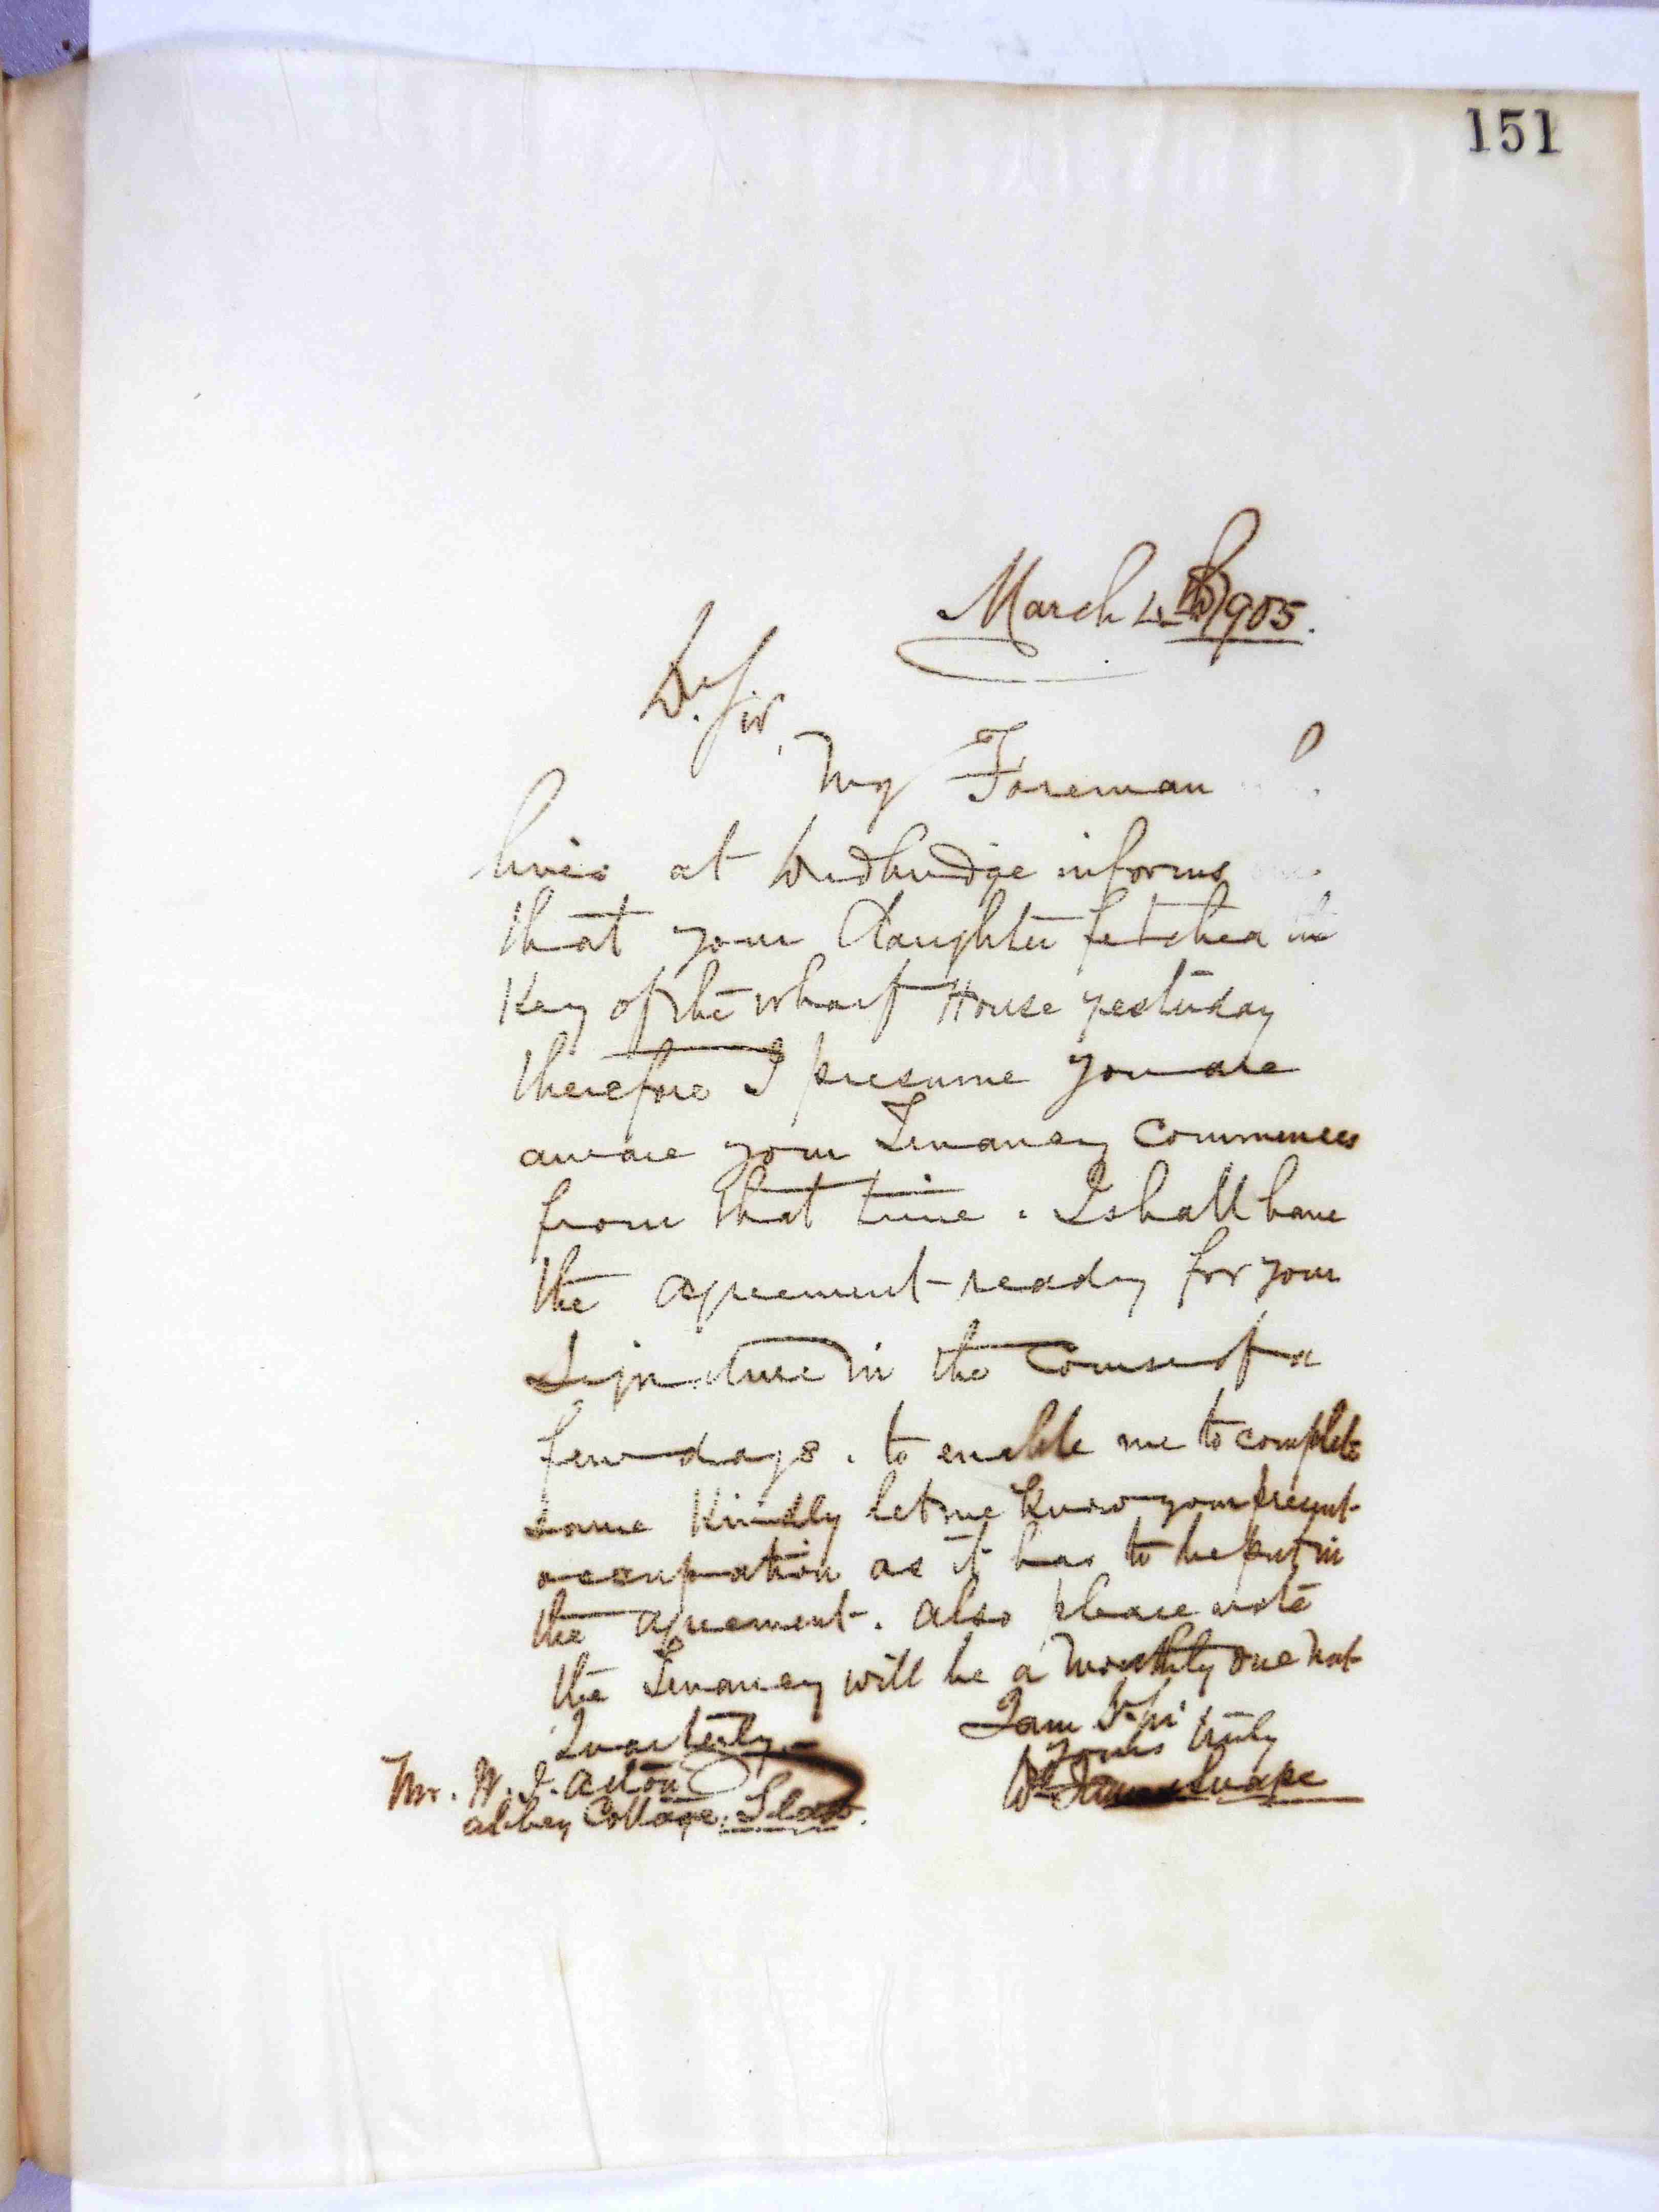 151
March 4th 1905.
Dr. Sir,
My Foreman
lives at Dudbridge informs me
that your daughter fetched the
Key of the Wharf House yesterday
therefore I presume you are
aware your Tenancy Commences
from that time. I shall have
the agreement ready for your
Signature in the Course of a
few days. to enable me to complete
same Kindly let me Know your present
occupation as it has to be put in
the agreement. also please note
the Tenancy will be a Monthly one not
Quarterly.
I am Dr Sir
yours truly
Wm James Snape
Mr. W. J. Acton
Abbey Cottage,